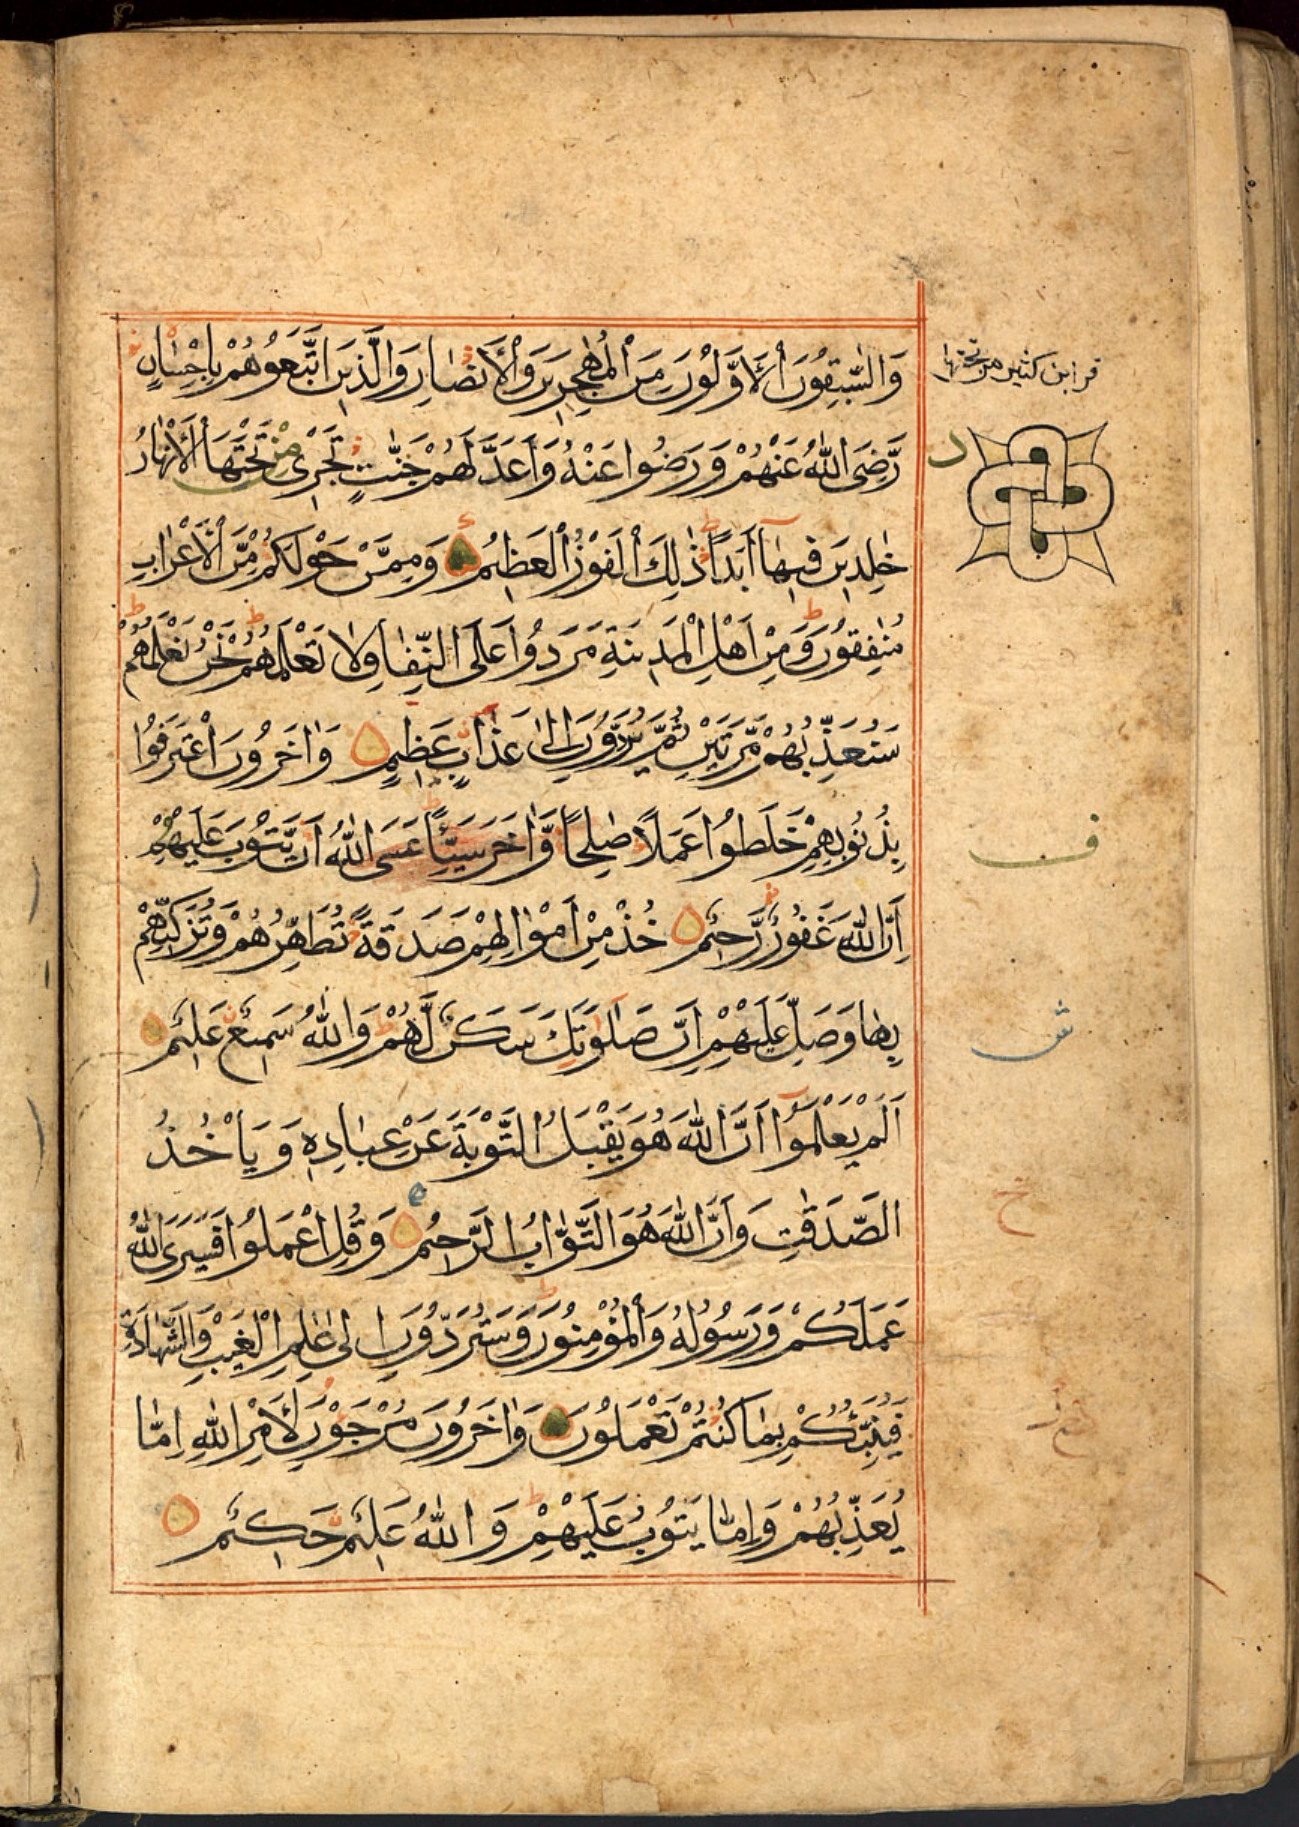 وَالسّٰبِقُوْنَ الْاَوَّلُوْنَ مِنَ الْمُهٰجِرِيْنَ وَالْاَنْصَارِ وَالَّذِيْنَ اتَّبَعُوْهُمْ بِاِحْسَانٍ
قرا ابن كثير من تحتها
رَّضِىَ اللّٰهُ عَنْهُمْ وَرَضُوا عَنْهُ وَاَعَدَّ لَهُمْ جَنّٰتٍ تَجْرِىْ مِنْ تَحْتَهَا الْاَنْهَارُ
د
خٰلِدِيْنَ فِيْهَا اَبَدًا ذٰلِكَ الْفَوْزُ الْعَظِيْمُ وَمِمَّنْ حَوْلَكُمْ مِّنَ الْاَعْرَابِ
مُنٰفِقُوْنَ وَمِنْ اَهْلِ الْمَدِيْنَةِ مَرَدُوْا عَلَى النِّفَاقِ لَا تَعْلَمُهُمْ نَحْنُ نَعْلَمُهُمْ
سَنُعَذِّبُهُمْ مَّرَّتَيْنِ ثُمَّ يُرَدُّوْنَ اِلٰى عَذَابٍ عَظِيْمٍ وَاٰخَرُوْنَ اعْتَرَفُوْا
بِذُنُوْبِهِمْ خَلَطُوْا عَمَلًا صٰلِحًا وَّاٰخَرَ سَيِّئًا عَسَى اللّٰهُ اَنْ يَّتُوْبَ عَلَيْهِمْ
ف
اِنَّ اللّٰهَ غَفُوْرٌ رَّحِيْمٌ خُذْ مِنْ اَمْوَالِهِمْ صَدَقَةً تُطَهِّرُهُمْ وَتُزَكِّيْهِمْ
بِهَا وَصَلِّ عَلَيْهِمْ اِنَّ صَلٰوتَكَ سَكَنٌ لَّهُمْ وَاللّٰهُ سَمِيْعٌ عَلِيْمٌ
ش
اَلَمْ يَعْلَمُوْا اَنَّ اللّٰهَ هُوَ يَقْبَلُ التَّوْبَةَ عَنْ عِبَادِهٖ وَيَاْخُذُ
الصَّدَقٰتِ وَاَنَّ اللّٰهَ هُوَ التَّوَّابُ الرَّحِيْمُ وَقُلِ اعْمَلُوْا فَسَيَرَى اللّٰهُ
ح
عَمَلَكُمْ وَرَسُوْلُهُ وَالْمُؤْمِنُوْنَ وَسَتُرَدُّوْنَ اِلٰى عٰلِمِ الْغَيْبِ وَالشَّهَادَةِ
فَيُنَبِّئُكُمْ بِمَا كُنْتُمْ تَعْمَلُوْنَ وَاٰخَرُوْنَ مُرْجَوْنَ لِاَمْرِ اللّٰهِ اِمَّا
يُعَذِّبُهُمْ وَاِمَّا يَتُوْبُ عَلَيْهِمْ وَاللّٰهُ عَلِيْمٌ حَكِيْمٌ